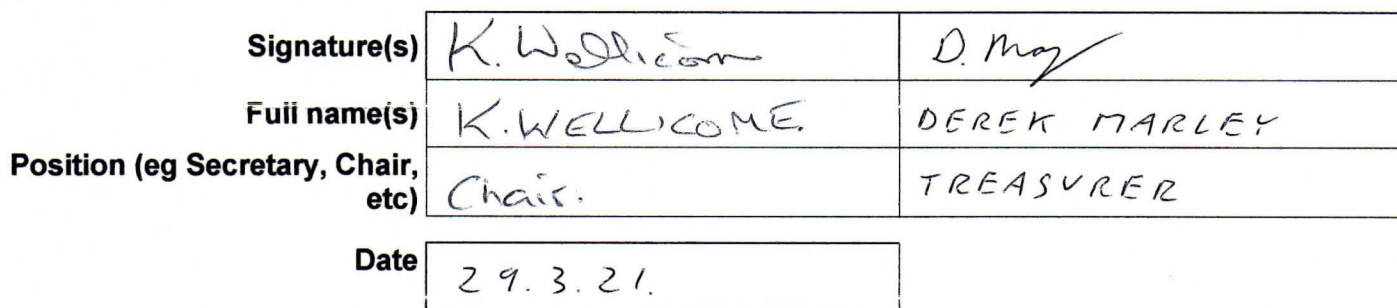 Signature(s) K. Wellicome D. Mar
Full name(s) K. WELLICOME. DEREK MARLEY
Position (eg Secretary, Chair,
etc) Chair. TREASURER
Date 29.3.21.